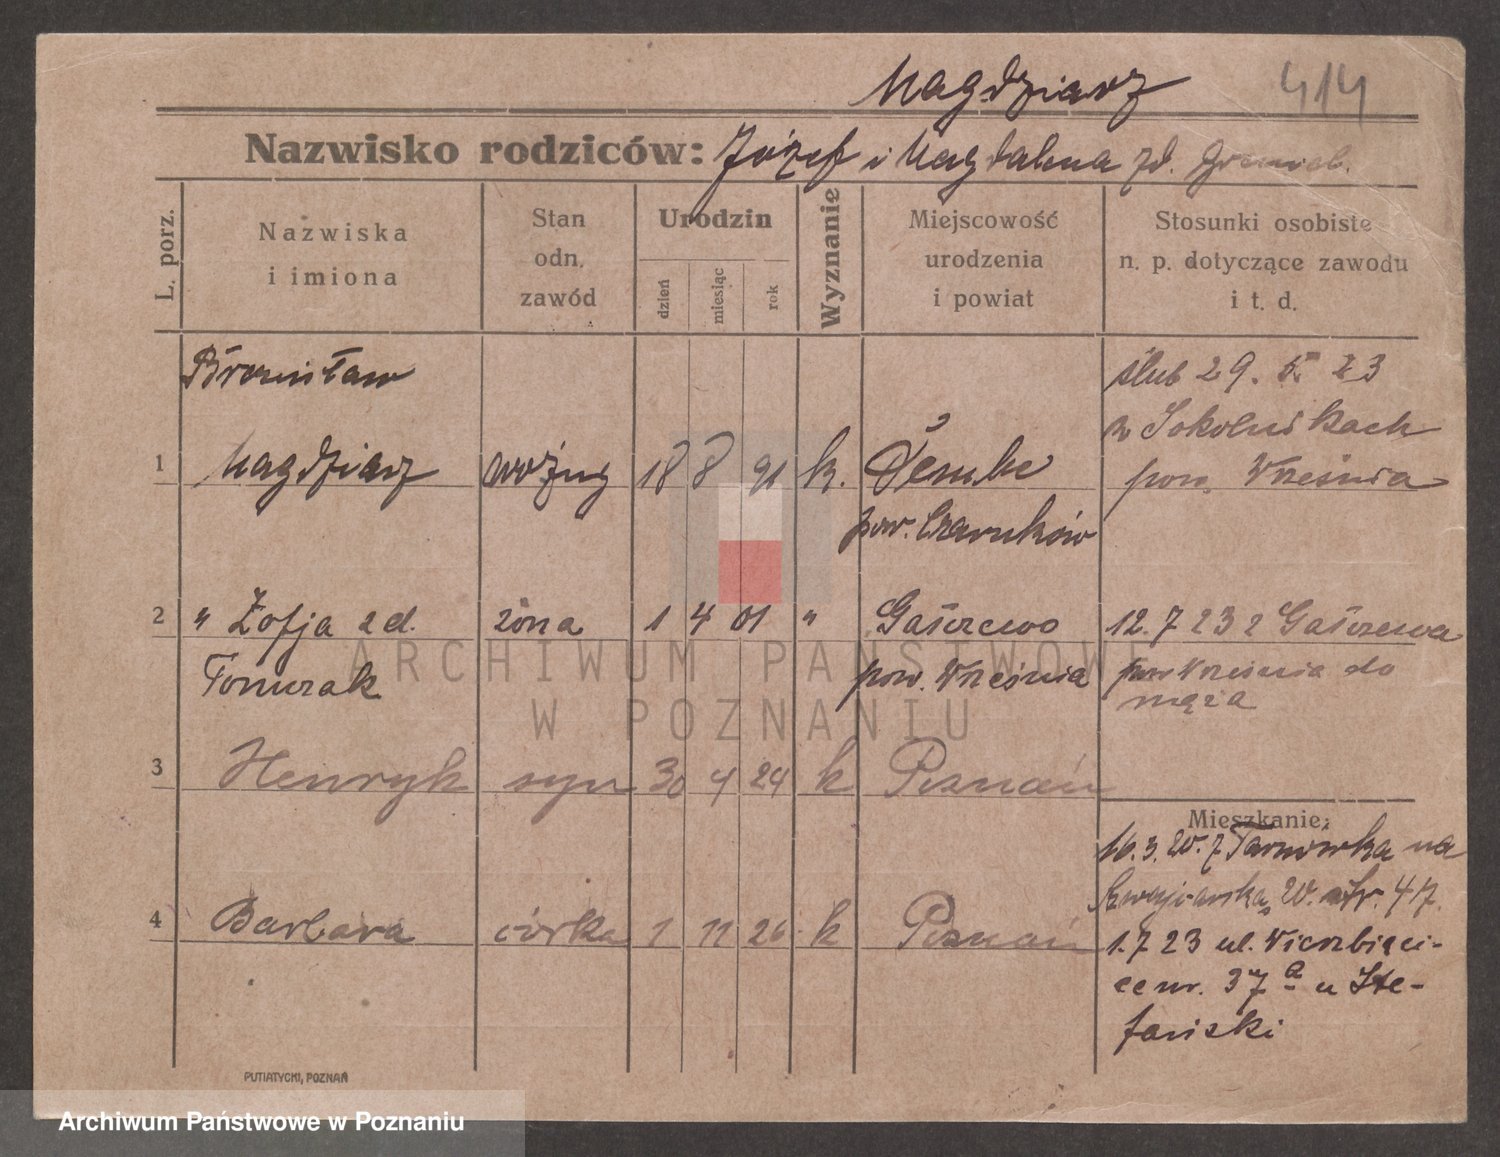 Magdziarz 414
Nazwisko rodziców: Józef i Magdalena zd.
L. porz.
Nazwiska
i imiona
Stan
odn.
zawód
Urodzin
dzień
miesiąc
rok
Wyznanie
Miejscowość
urodzenia
i powiat
Stosunki osobiste
n. p. dotyczące zawodu
i t. d.
Bronisław
1 Magdziarz woźny 18 8 91 k.
pow. Czarnków
ślub 29. 5. 23
w Sokolnikach
pow. Września
2 " Zofja zd. żona 1 4 01 " Gałczewo
pow. Września
12. 7 23 z Gałczewa
pow Września do
męża
3 Henryk syn 30 4 24 k Poznań
4 Barbara córka 1 11 26 k Poznań
Mieszkanie:
16. 3. 20. z Tarnówka na
20. str. 47.
1. 7 23 ul. Wierzbięci-
ce nr. 37 a u Ste-
fański
PUTIATYCKI, POZNAŃ
ARCHIWUM PAŃSTWOWE
W POZNANIU
Archiwum Państwowe w Poznaniu